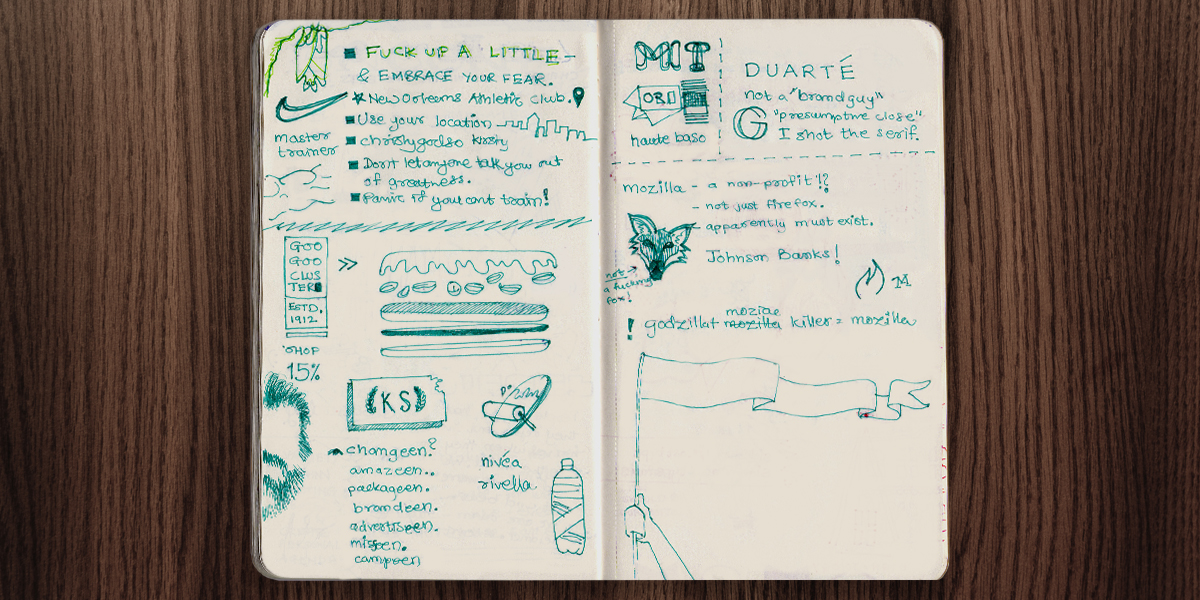 FUCK UP A LITTLE –
& EMBRACE YOUR FEAR.
New Orleans Athletic Club.
Use your location
chrishygodso
Don't let anyone talk you out
of greatness.
Panic if you cant train!
master
trainer
GOO
GOO
CLUS
TER
ESTD.
1912
SHOP
15%
KS
changeen?
amazeen..
packageen.
brandeen.
advertiseen.
misseen.
campeen
nivéa
rivella
MIT
OBI
haute baso
DUARTÉ
not a "brand guy"
"presumptive close"
I shot the serif.
mozilla - a non-profit!?
- not just firefox.
- apparently must exist.
Johnson Banks!
not
a fucking
fox!
M
mozide
! godzilla+ mozilla killer = mozilla